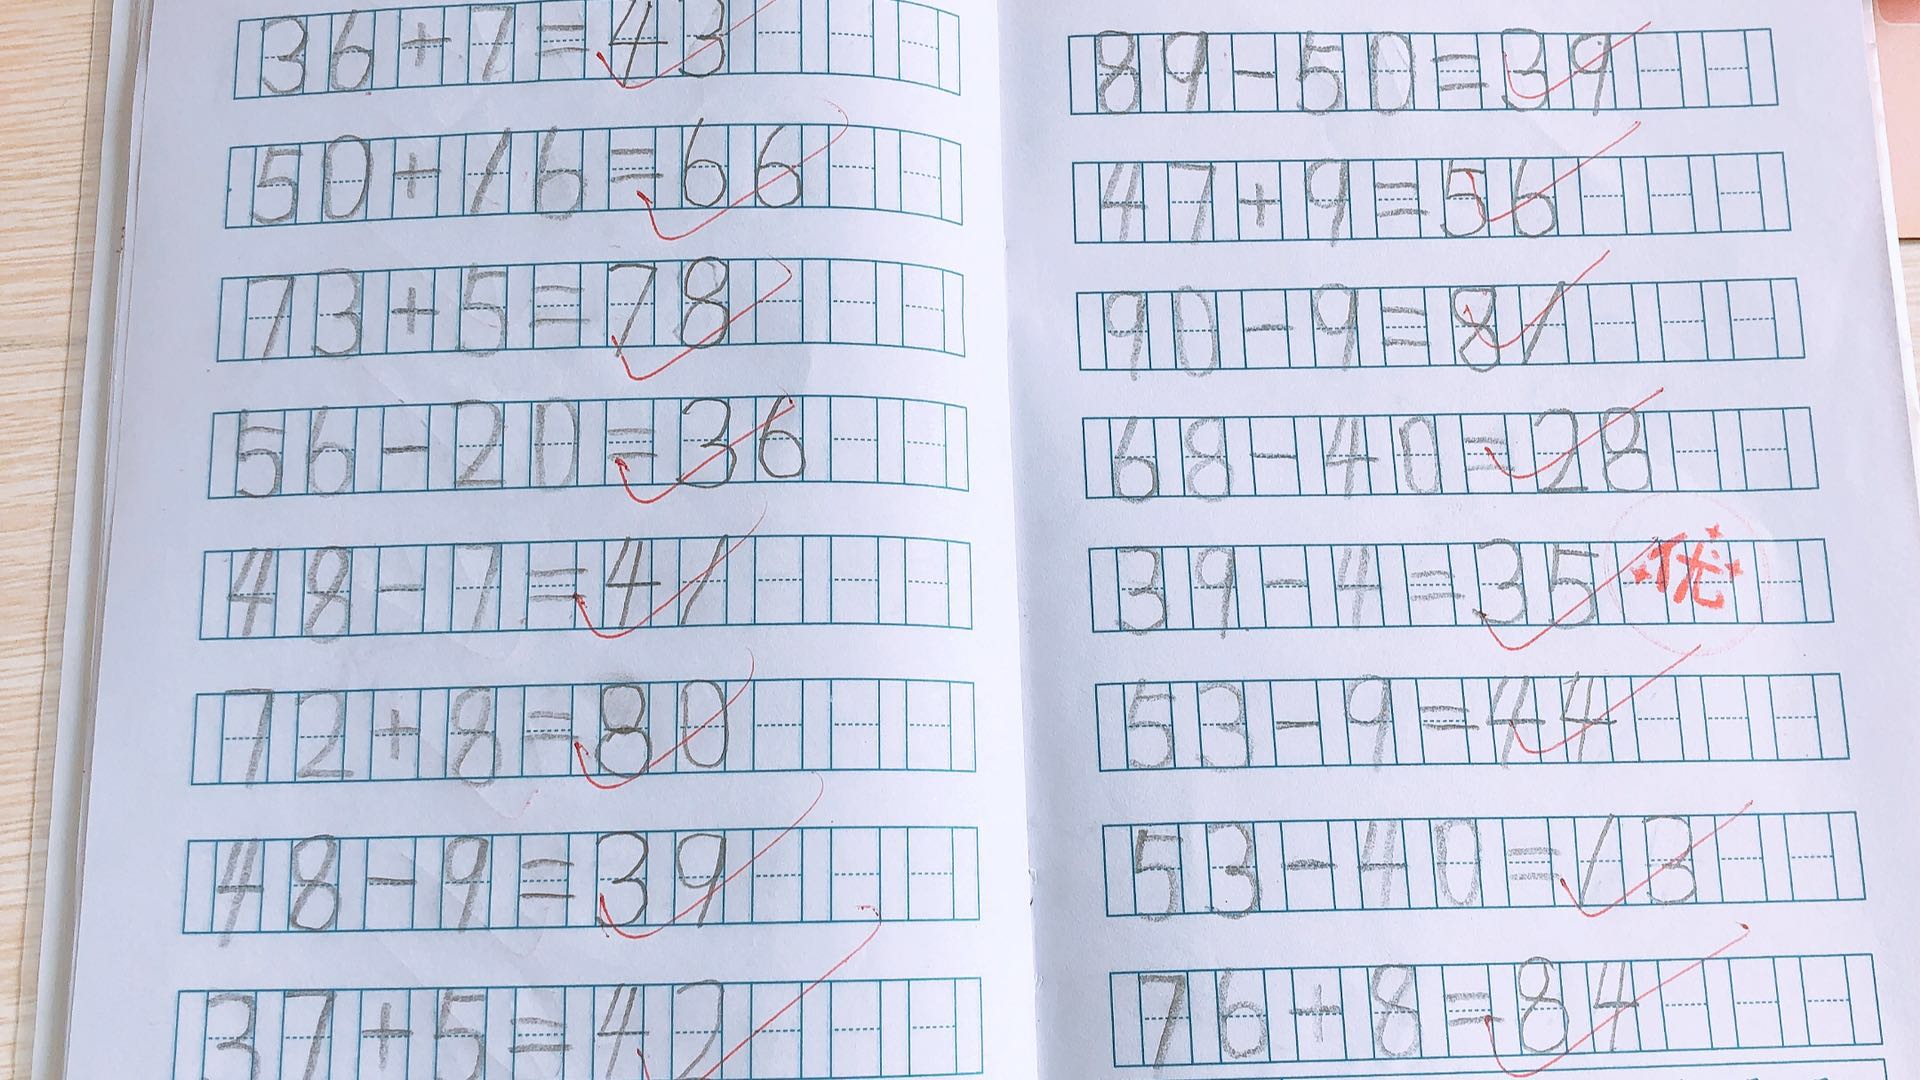 36+7=43
50+16=66
73+5=78
56-20=36
48-7=41
72+8=80
48-9=39
37+5=42
89-50=39
47+9=56
90-9=81
68-40=28
39-4=35 优
53-9=44
53-40=13
76+8=84